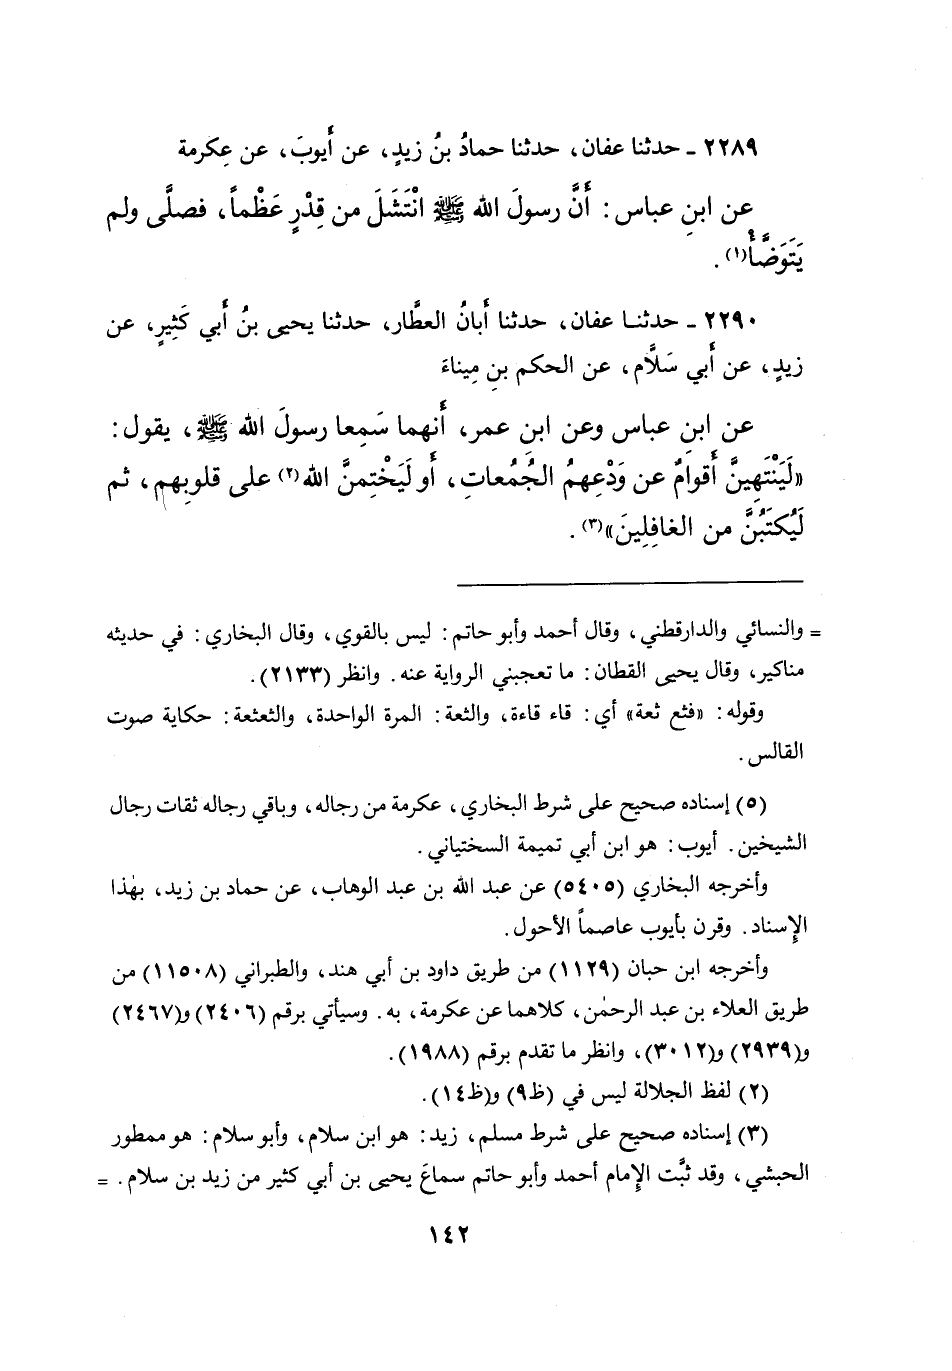 ٢٢٨٩ ـ حدثنا عفان، حدثنا حمادُ بنُ زيدٍ، عن أَيوبَ، عن عِكرمة
عن ابنِ عباس: أَنَّ رسولَ الله ﷺ انْتَشَلَ من قِدْرٍ عَظْماً، فصلَّى ولم
يَتَوَضَّأْ(١).
٢٢٩٠ ـ حدثنـا عفان، حدثنا أَبانُ العطَّار، حدثنا يحيى بنُ أَبي كَثِيرٍ، عن
زيدٍ، عن أَبي سَلَّام، عن الحكم بنِ مِيناءَ
عن ابنِ عباس وعن ابنِ عمر، أَنهما سَمِعا رسولَ الله ﷺ، يقول:
«لَيَنْتَهِينَّ أَقوامٌ عن وَدْعِهمُ الجُمُعاتِ، أَو لَيَخْتِمنَّ الله(٢) على قلوبِهم، ثم
لَيُكتَبُنَّ من الغافِلِينَ»(٣).
= والنسائي والدارقطني، وقال أحمد وأبو حاتم: ليس بالقوي، وقال البخاري: في حديثه
مناكير، وقال يحيى القطان: ما تعجبني الرواية عنه. وانظر (٢١٣٣).
وقوله: «فثع ثعة» أي: قاء قاءة، والثعة: المرة الواحدة، والثعثعة: حكاية صوت
القالس.
(٥) إسناده صحيح على شرط البخاري، عكرمة من رجاله، وباقي رجاله ثقات رجال
الشيخين. أيوب: هو ابن أبي تميمة السختياني.
وأخرجه البخاري (٥٤٠٥) عن عبد الله بن عبد الوهاب، عن حماد بن زيد، بهٰذا
الإسناد. وقرن بأيوب عاصماً الأحول.
وأخرجه ابن حبان (١١٢٩) من طريق داود بن أبي هند، والطبراني (١١٥٠٨) من
طريق العلاء بن عبد الرحمٰن، كلاهما عن عكرمة، به. وسيأتي برقم (٢٤٠٦) و(٢٤٦٧)
و(٢٩٣٩) و(٣٠١٢)، وانظر ما تقدم برقم (١٩٨٨).
(٢) لفظ الجلالة ليس في (ظ٩) و(ظ١٤).
(٣) إسناده صحيح على شرط مسلم، زيد: هو ابن سلام، وأبو سلام: هو ممطور
الحبشي، وقد ثبَّت الإمام أحمد وأبو حاتم سماعَ يحيى بن أبي كثير من زيد بن سلام. =
١٤٢